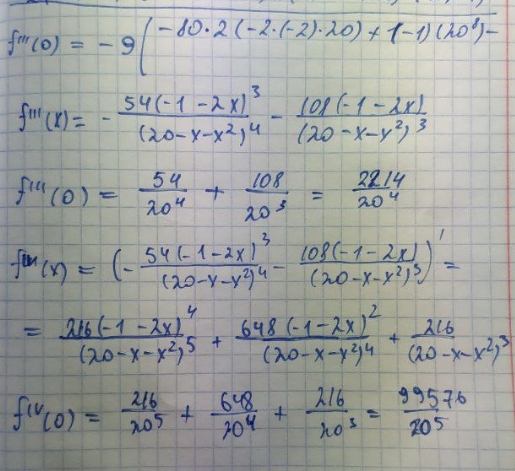 f'''(0) = -9 ( -80·2(-2·(-2)·20) + 1(-1)(20⁸) -
f'''(x) = - 54(-1-2x)³/(20-x-x²)⁴ - 108(-1-2x)/(20-x-x²)³
f'''(0) = 54/20⁴ + 108/20³ = 2214/20⁴
(x) = (- 54(-1-2x)³/(20-x-x²)⁴ - 108(-1-2x)/(20-x-x²)³)' =
= 216(-1-2x)⁴/(20-x-x²)⁵ + 648(-1-2x)²/(20-x-x²)⁴ + 216/(20-x-x²)³
f^IV(0) = 216/20⁵ + 648/20⁴ + 216/20³ = 99576/20⁵